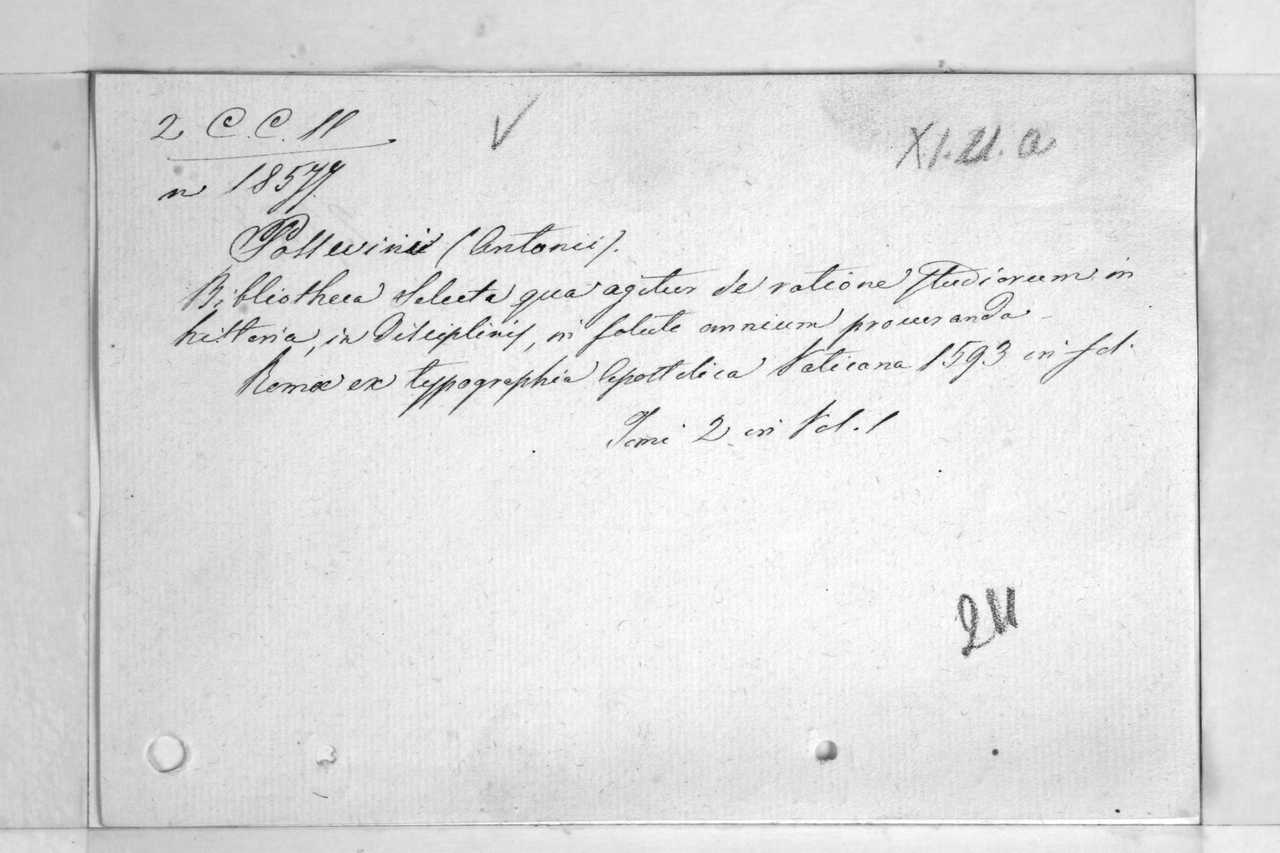 2 C. C. 11
XI. 11. a
n 18577.
Possevini (Antonii).
Bibliotheca selecta qua agitur de ratione studiorum in
historia, in Disciplinis, in salute omnium procuranda
Romæ ex typographia Apostolica Vaticana 1593 in fol.
Tomi 2 in Vol. 1